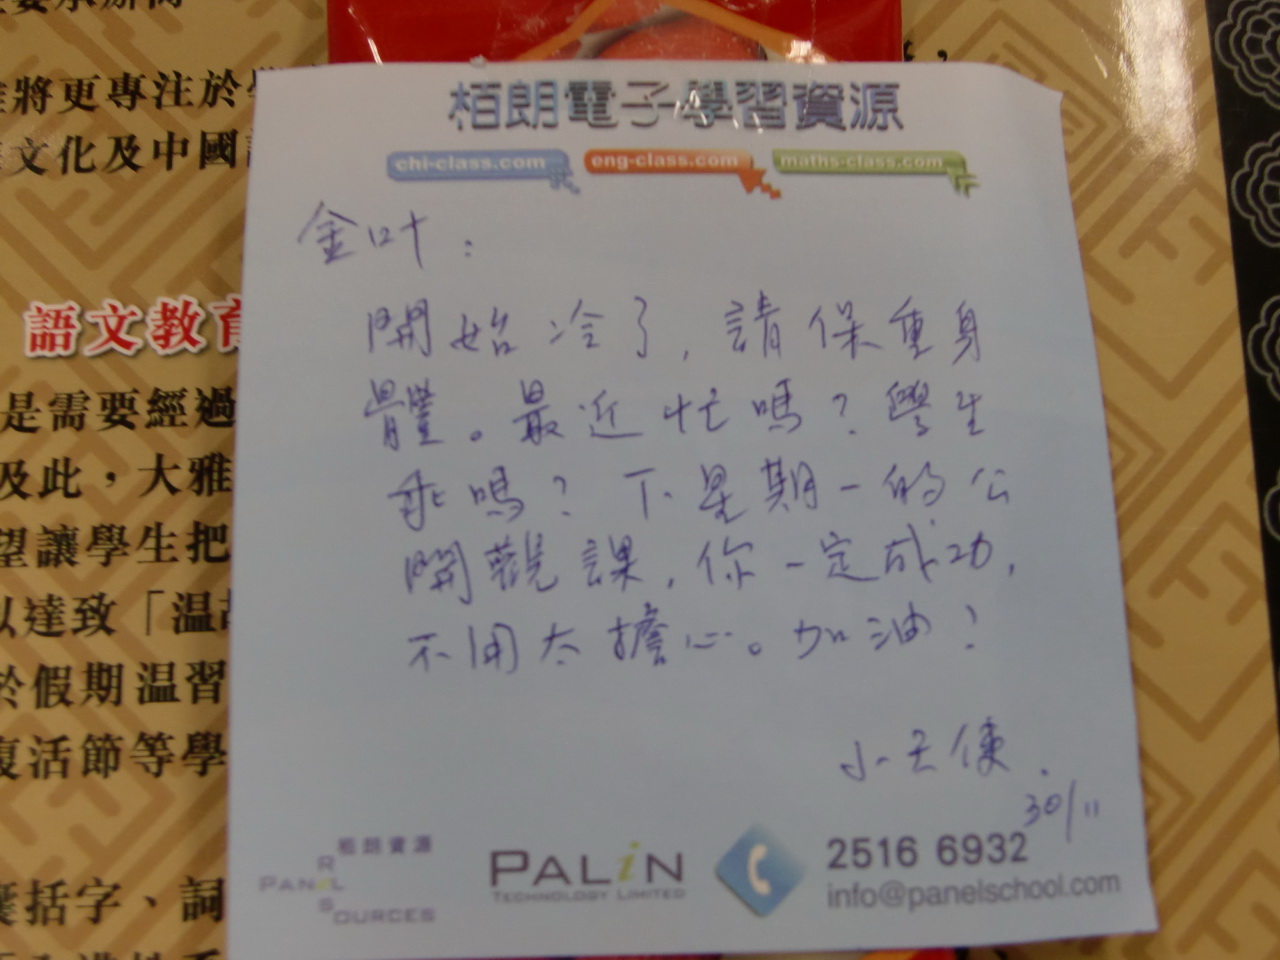 將更專注於
文化及中國
語文教育
是需要經過
及此，大雅
望讓學生把
以達致「温
於假期温習
復活節等學
括字、詞
栢朗電子學習資源
chi-class.com eng-class.com maths-class.com
金叶：
開始冷了，請保重身
體。最近忙嗎？學生
乖嗎？下星期一的公
開觀課，你一定成功，
不用太擔心。加油！
小天使.
30/11
栢朗資源
PANEL
RESOURCES
PALiN
TECHNOLOGY LIMITED
2516 6932
info@panelschool.com